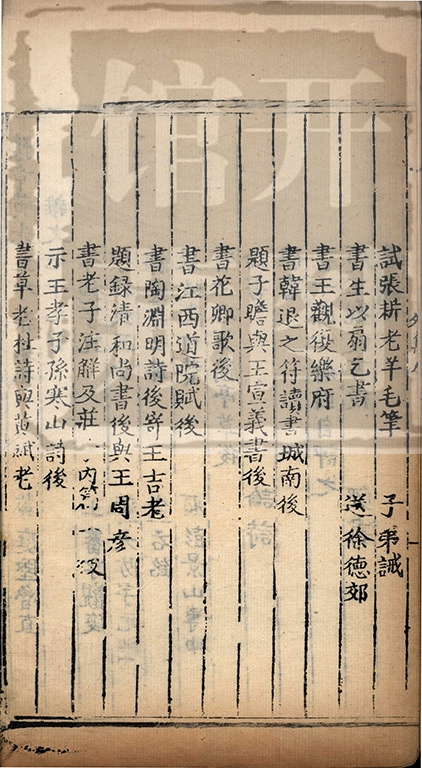 試張耕老羊毛筆 子弟誡
書生以扇乞書 送徐德郊
書王觀復樂府
書韓退之符讀書城南後
題子瞻與王宣義書後
書花卿歌後
書江西道院賦後
書陶淵明詩後寄王吉老
題錄清和尚書後與王周彥
書老子注解及莊 內篇 後
示王孝子孫寒山詩後
書草老杜詩與黃斌老
开馆